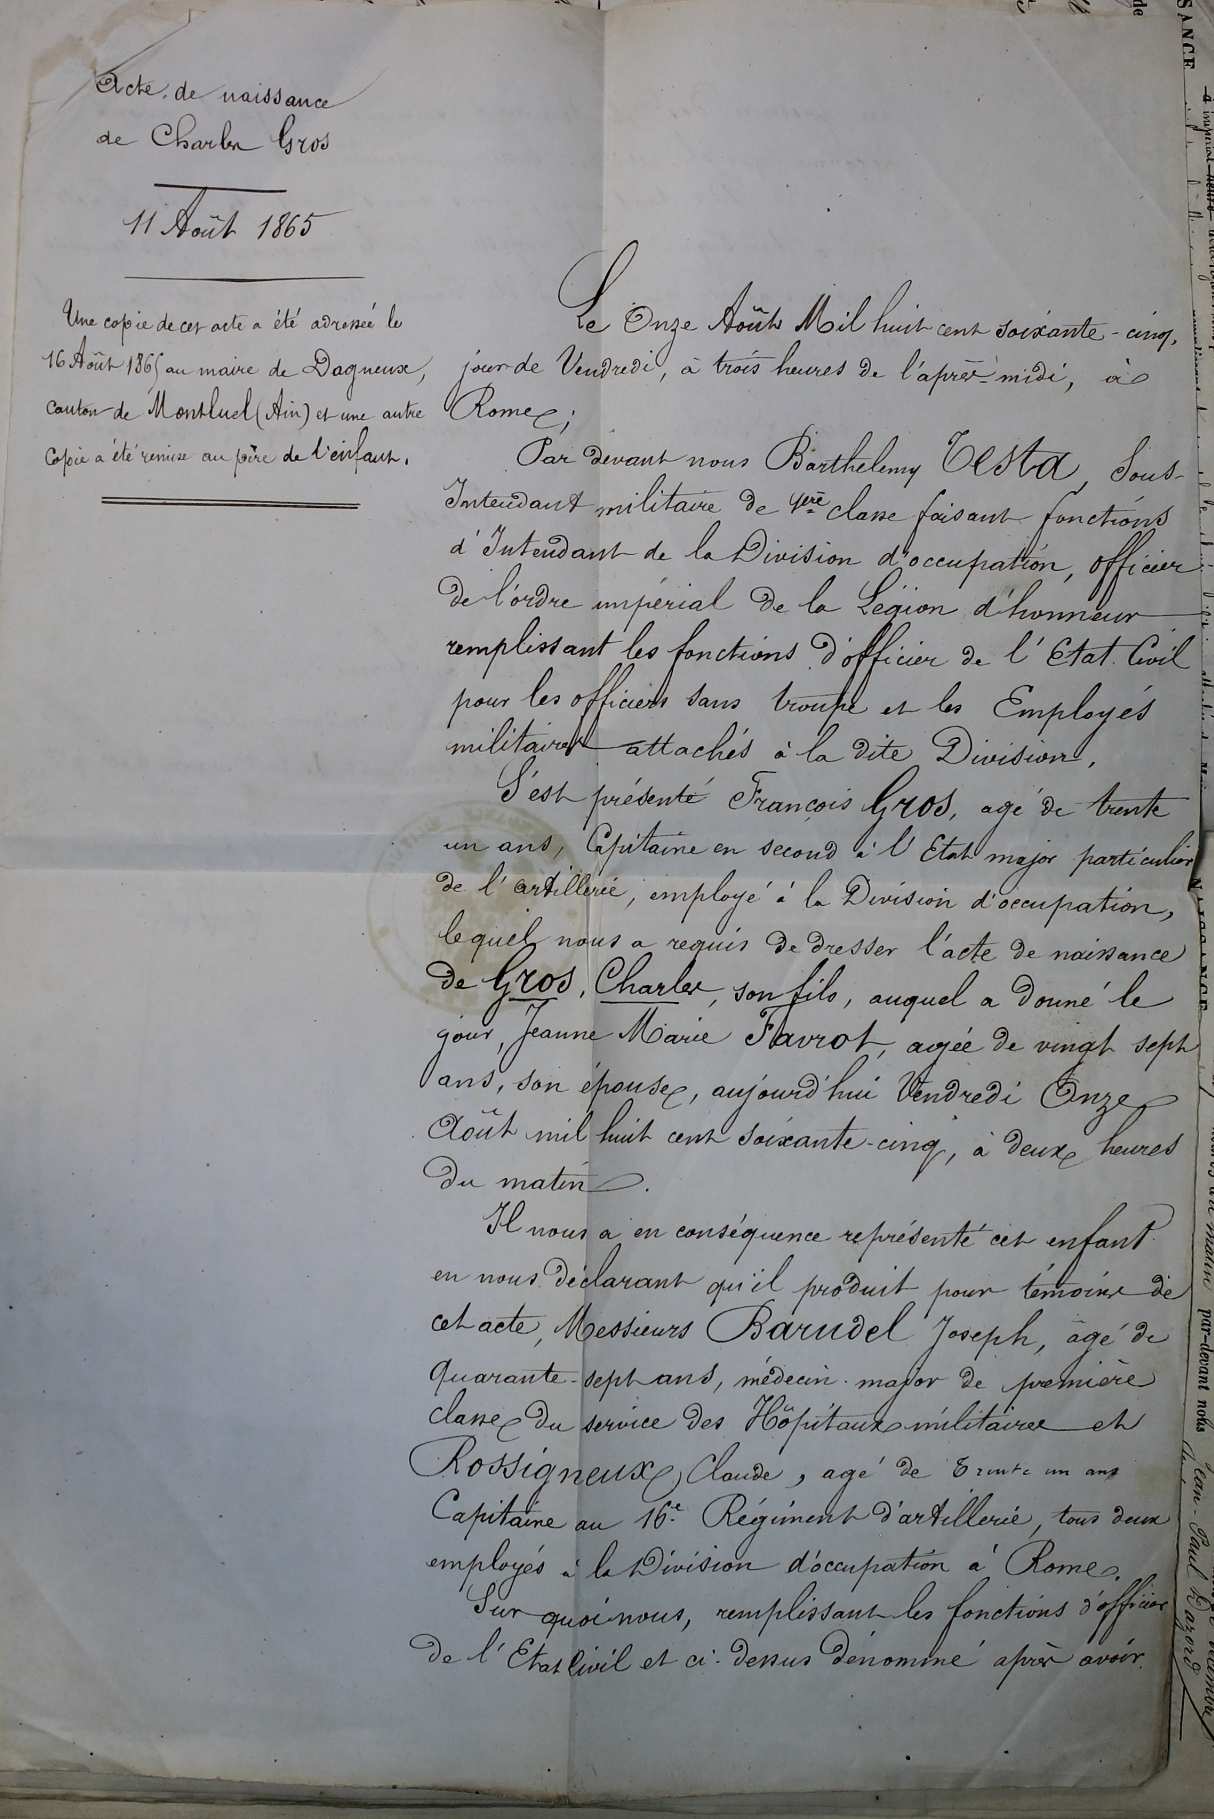 Acte de naissance
de Charles Gros
11 Août 1865
Une copie de cet acte a été adressée le
16 Août 1865 au maire de Dagneux,
canton de Montluel (Ain) et une autre
copie a été remise au père de l'enfant.
Le Onze Août Mil huit cent soixante-cinq,
jour de Vendredi, à trois heures de l'après-midi, à
Rome;
Par devant nous Barthelemy Testa, Sous-
Intendant militaire de 1ère classe faisant fonctions
d'Intendant de la Division d'occupation, officier
de l'ordre impérial de la Légion d'honneur
remplissant les fonctions d'officier de l'Etat Civil
pour les officiers sans troupe et les Employés
militaires attachés à la dite Division.
S'est présenté François Gros, agé de trente
un ans, Capitaine en second à l'Etat major particulier
de l'artillerie, employé à la Division d'occupation,
lequel nous a requis de dresser l'acte de naissance
de Gros, Charles, son fils, auquel a donné le
jour, Jeanne Marie Favrot, agée de vingt sept
ans, son épouse, aujourd'hui Vendredi Onze
Août mil huit cent soixante-cinq, à deux heures
du matin.
Il nous a en conséquence représenté cet enfant
en nous déclarant qu'il produit pour témoins de
cet acte, Messieurs Barudel Joseph, âgé de
quarante-sept ans, médecin-major de première
classe du service des Hôpitaux militaires et
Rossigneux, Claude, agé de trente un ans
Capitaine au 16e. Régiment d'artillerie, tous deux
employés à la Division d'occupation à Rome.
Sur quoi nous, remplissant les fonctions d'officier
de l'Etat Civil et ci-dessus dénommé après avoir
SANCE
de
par-devant nous
Jean-Paul